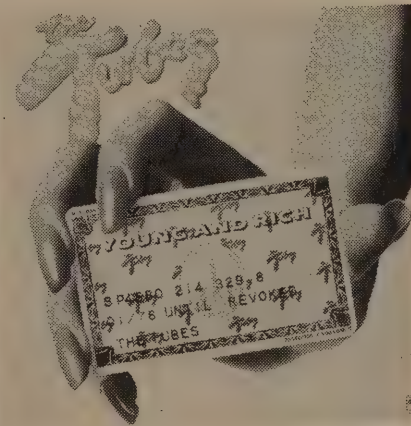 the
Tubes
YOUNG AND RICH
SP4580 214 329,8
01/76 UNTIL REVOKED
THE TUBES